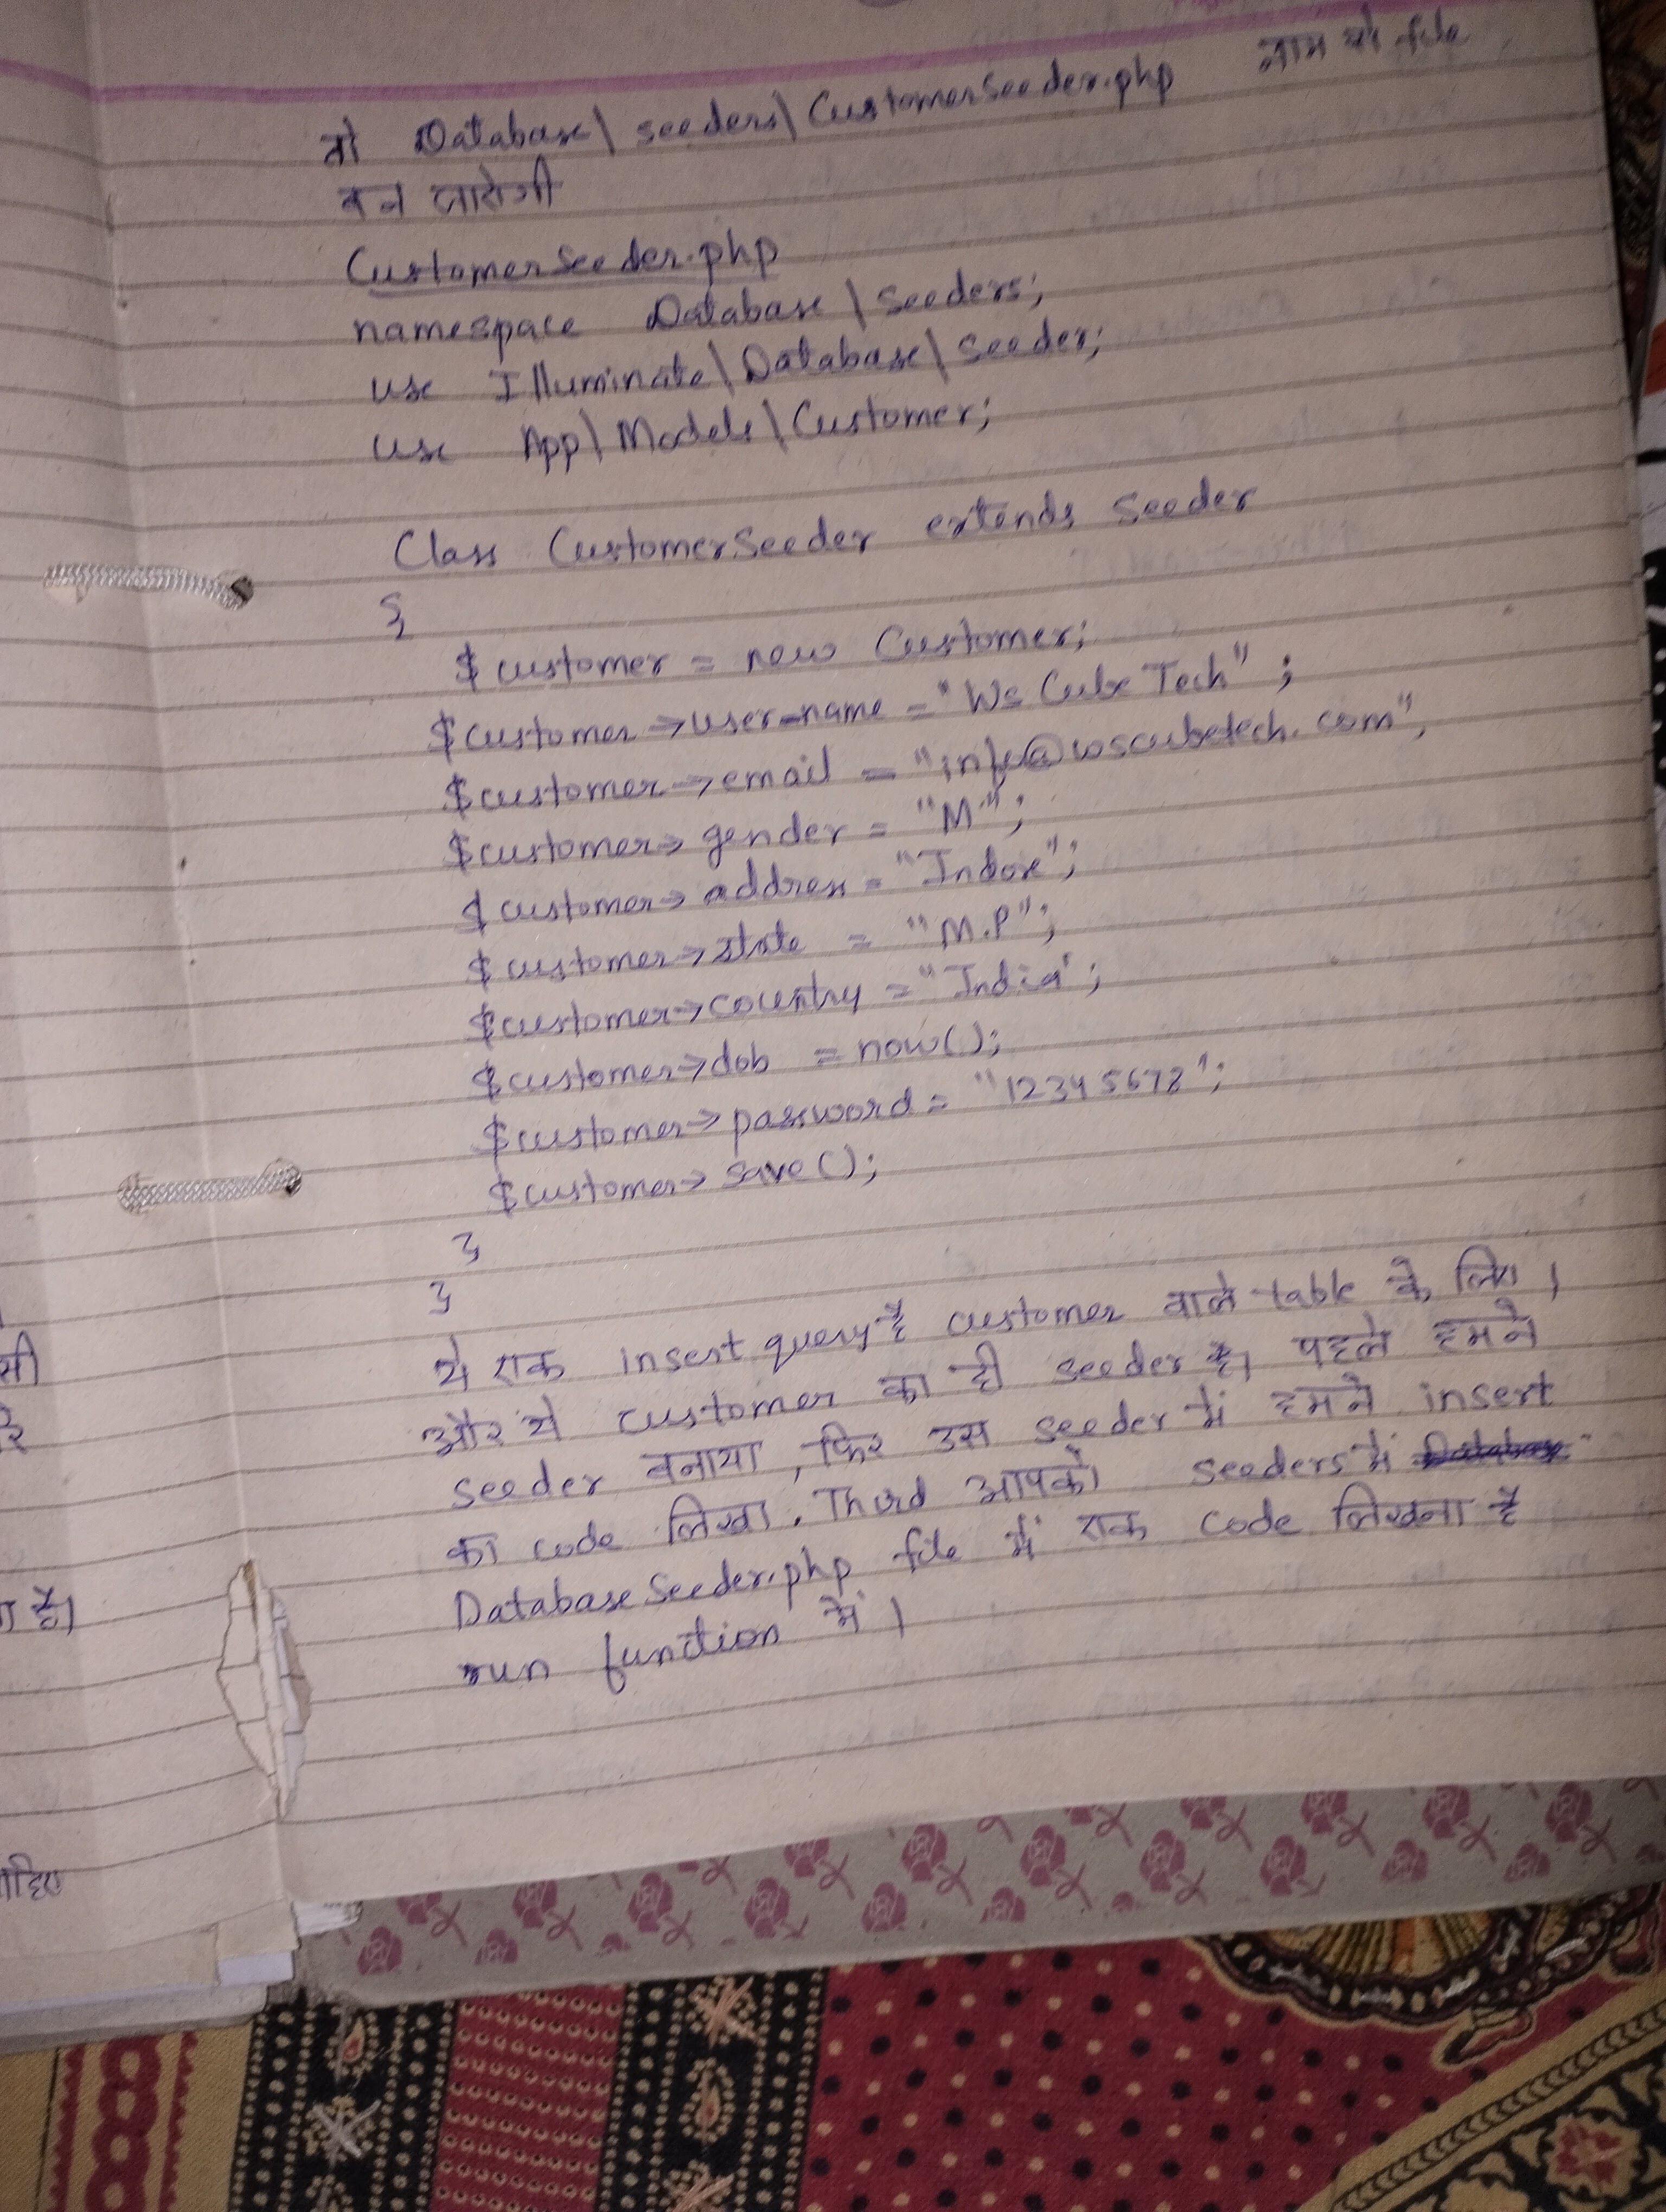 तो Database\ seeders\ CustomerSeeder.php नाम की file
बन जायेगी
CustomerSeeder.php
namespace Database \ Seeders;
use Illuminate\Database\Seeder;
use App\Models\Customer;
Class CustomerSeeder extends Seeder
{
$customer = new Customer;
$customer->user_name = "Ws Cube Tech";
$customer->email = "info@wscubetech.com";
$customer->gender = "M";
$customer->address = "Indore";
$customer->state = "M.P";
$customer->country = "India";
$customer->dob = now();
$customer->password = "12345678";
$customer->save();
}
}
ये एक insert query है customer वाले table के लिए।
और ये customer का ही seeder है। पहले हमने
seeder बनाया, फिर उस seeder में हमने insert
का code लिखा. Third आपको seeders में
DatabaseSeeder.php file में एक code लिखना है
run function में।
सी
रे
है।